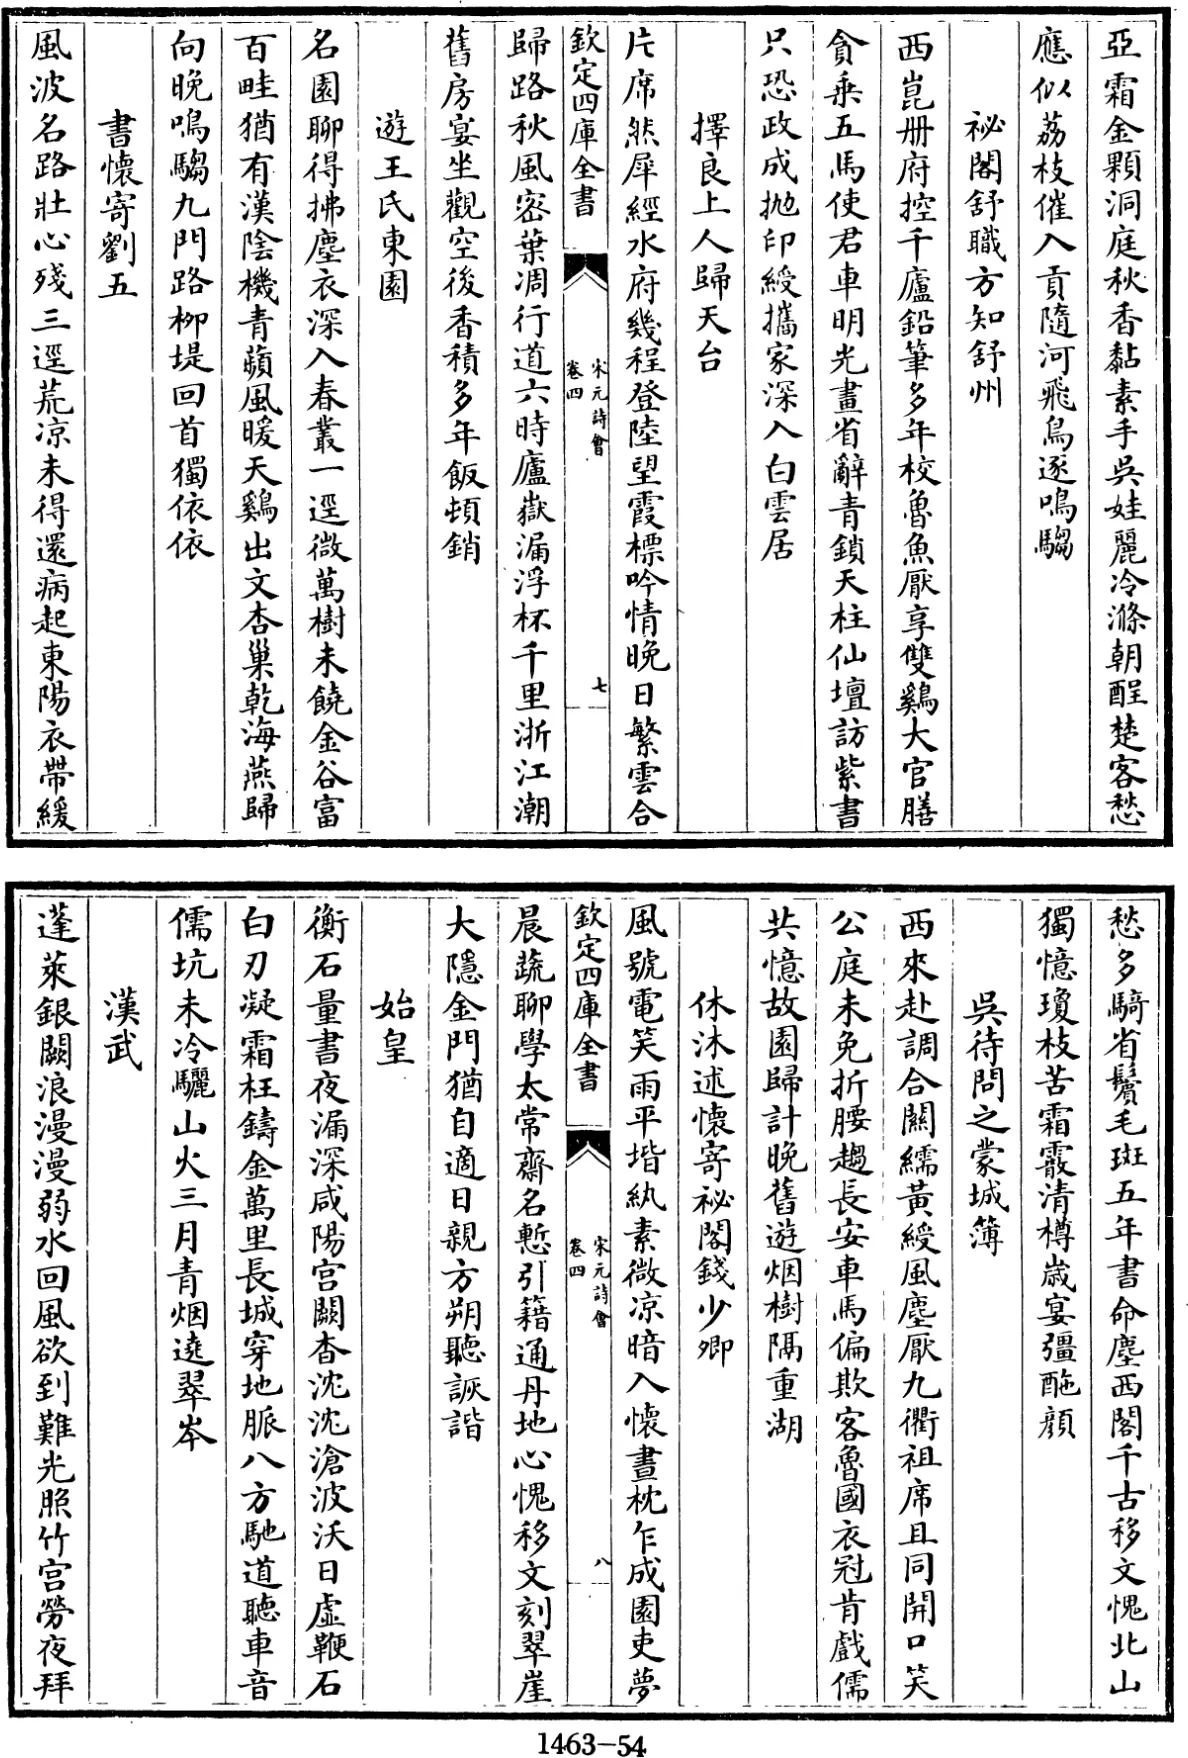 亞霜金顆洞庭秋香黏素手吳娃麗冷滌朝酲楚客愁
應似荔枝催入貢隨河飛鳥逐鳴騶
祕閣舒職方知舒州
西崑册府控千廬鉛筆多年校魯魚厭享雙鷄大官膳
貪乗五馬使君車明光畫省辭青鎖天柱仙壇訪紫書
只恐政成抛印綬攜家深入白雲居
擇良上人歸天台
片席然犀經水府幾程登陸望霞標吟情晩日繁雲合
欽定四庫全書
宋元詩會
卷四
七
歸路秋風密葉凋行道六時廬嶽漏浮杯千里浙江潮
舊房宴坐觀空後香積多年飯頓銷
遊王氏東園
名園聊得拂塵衣深入春叢一逕微萬樹未饒金谷富
百畦猶有漢陰機青蘋風暖天鷄出文杏巢乾海燕歸
向晩鳴騶九門路栁堤回首獨依依
書懷寄劉五
風波名路壯心殘三逕荒凉未得還病起東陽衣帶緩
愁多騎省鬢毛斑五年書命塵西閣千古移文愧北山
獨憶瓊枝苦霜霰清樽歲宴彊酡顔
吳待問之蒙城簿
西來赴調合關繻黄綬風塵厭九衢祖席且同開口笑
公庭未免折腰趨長安車馬偏欺客魯國衣冠肯戲儒
共憶故園歸計晩舊遊烟樹隔重湖
休沐述懷寄祕閣錢少卿
風號電笑雨平堦紈素微凉暗入懷晝枕乍成園吏夢
欽定四庫全書
宋元詩會
卷四
八
晨蔬聊學太常齋名慙引籍通丹地心愧移文刻翠崖
大隱金門猶自適日親方朔聽詼諧
始皇
衡石量書夜漏深咸陽宫闕杳沈沈滄波沃日虚鞭石
白刃凝霜枉鑄金萬里長城穿地脈八方馳道聽車音
儒坑未冷驪山火三月青烟遶翠岑
漢武
蓬萊銀闕浪漫漫弱水回風欲到難光照竹宫勞夜拜
1463—54